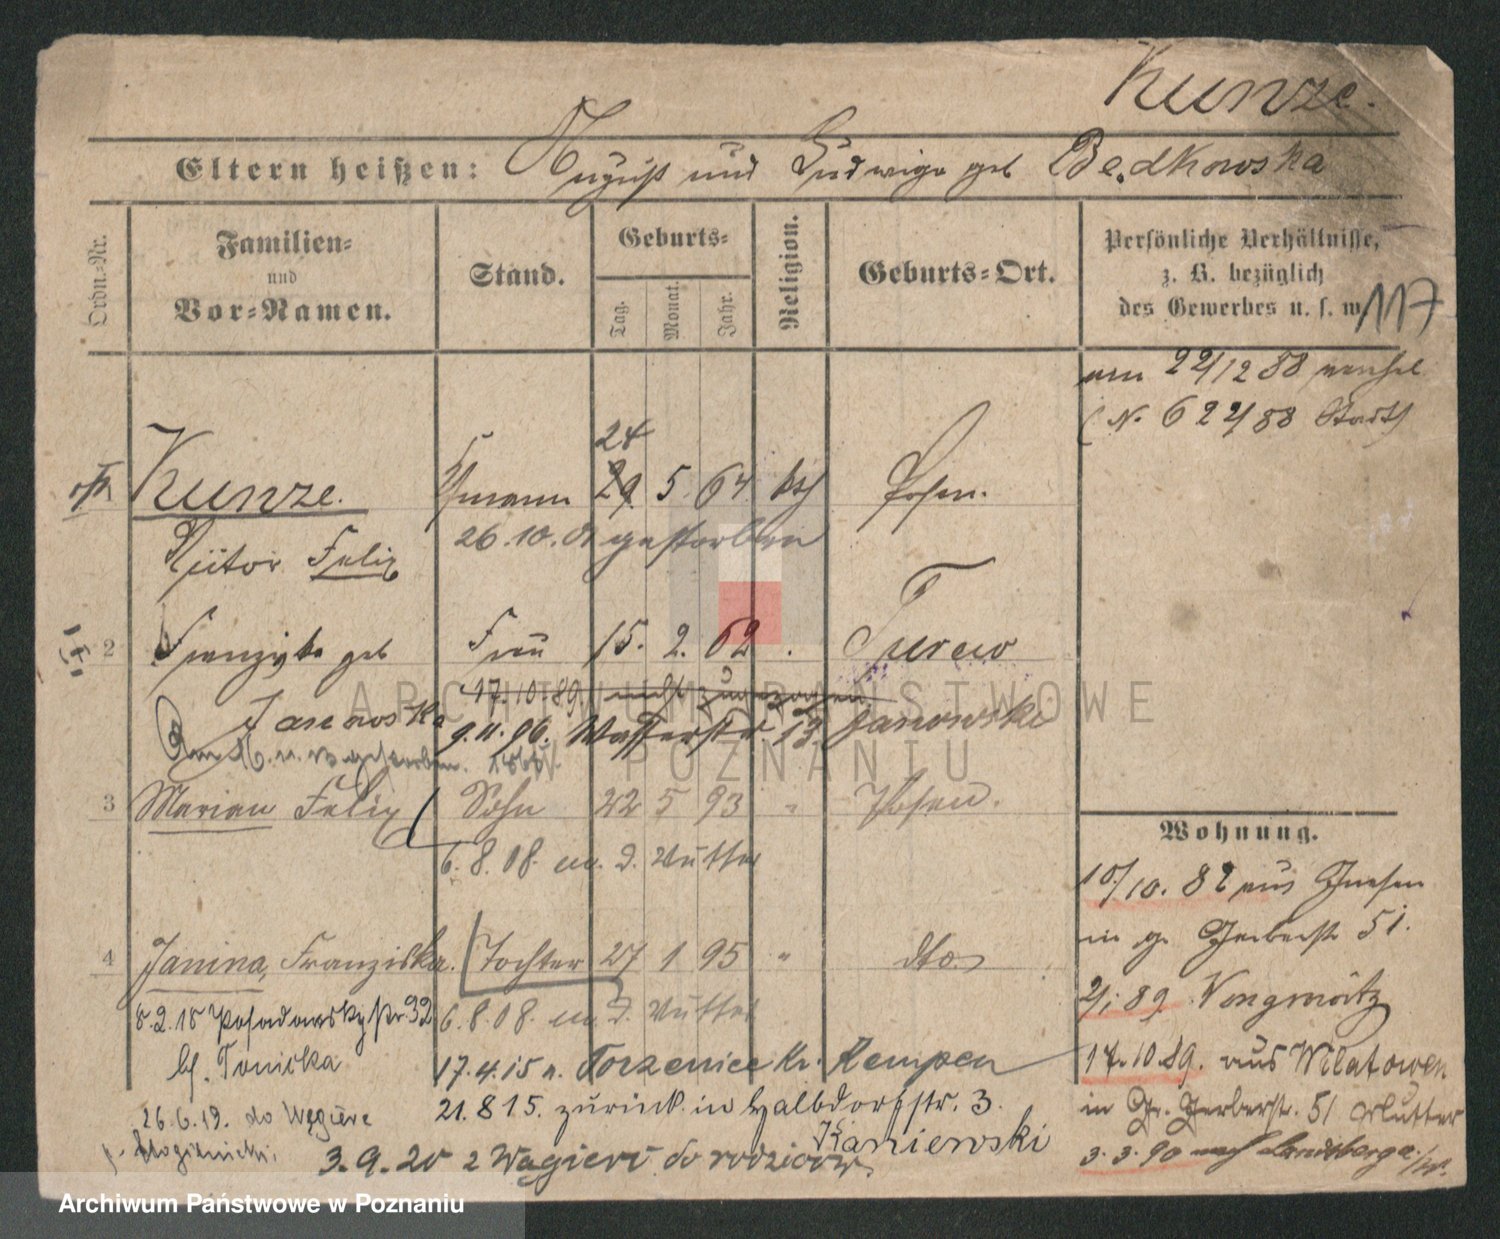 Kunze.
Eltern heißen: August und Ludwiga geb Będkowska
Ordn.-Nr.
Familien-
und
Vor-Namen.
Stand.
Geburts-
Tag.
Monat.
Jahr.
Religion.
Geburts-Ort.
Persönliche Verhältnisse,
z. B. bezüglich
des Gewerbes u. s. w.
117
22/12 88
(N. 622/88
24
Kunze. 29 5 64 kth Posen.
Victor Felix 26.10.01 gestorben
2 Franziska geb Frau 15. 2. 62 Turew
17.10 89 nicht zugezogen
Janowska 9.11.96. Wasserstr. 13. Janowski
3 Marian Felix Sohn 22 5 93 " Posen.
6.8.08. m. d. Mutter
Wohnung.
10/10. 82 aus Gnesen
in gr. Gerberstr 51.
4 Janina, Franziska. Tochter 27 1 95 " dto.
2/1 89 Wongrowitz
8.2.18 Posadowskystr. 32 6.8.08. m. d. Mutter
bf. Tonicka 17.4.15 n. Torzeniec Kr. Kempen
17.10 89. aus Wilatowen
26.6.19. do Węgierc 21.8 15. zurück in Halbdorfstr. 3.
in Gr. Gerberstr. 51 Mutter
Kaniewski
3.9.20 z Wągierc do rodziców.
3.3.90 nach Landsberg a/W.
ARCHIWUM PAŃSTWOWE
W POZNANIU
Archiwum Państwowe w Poznaniu